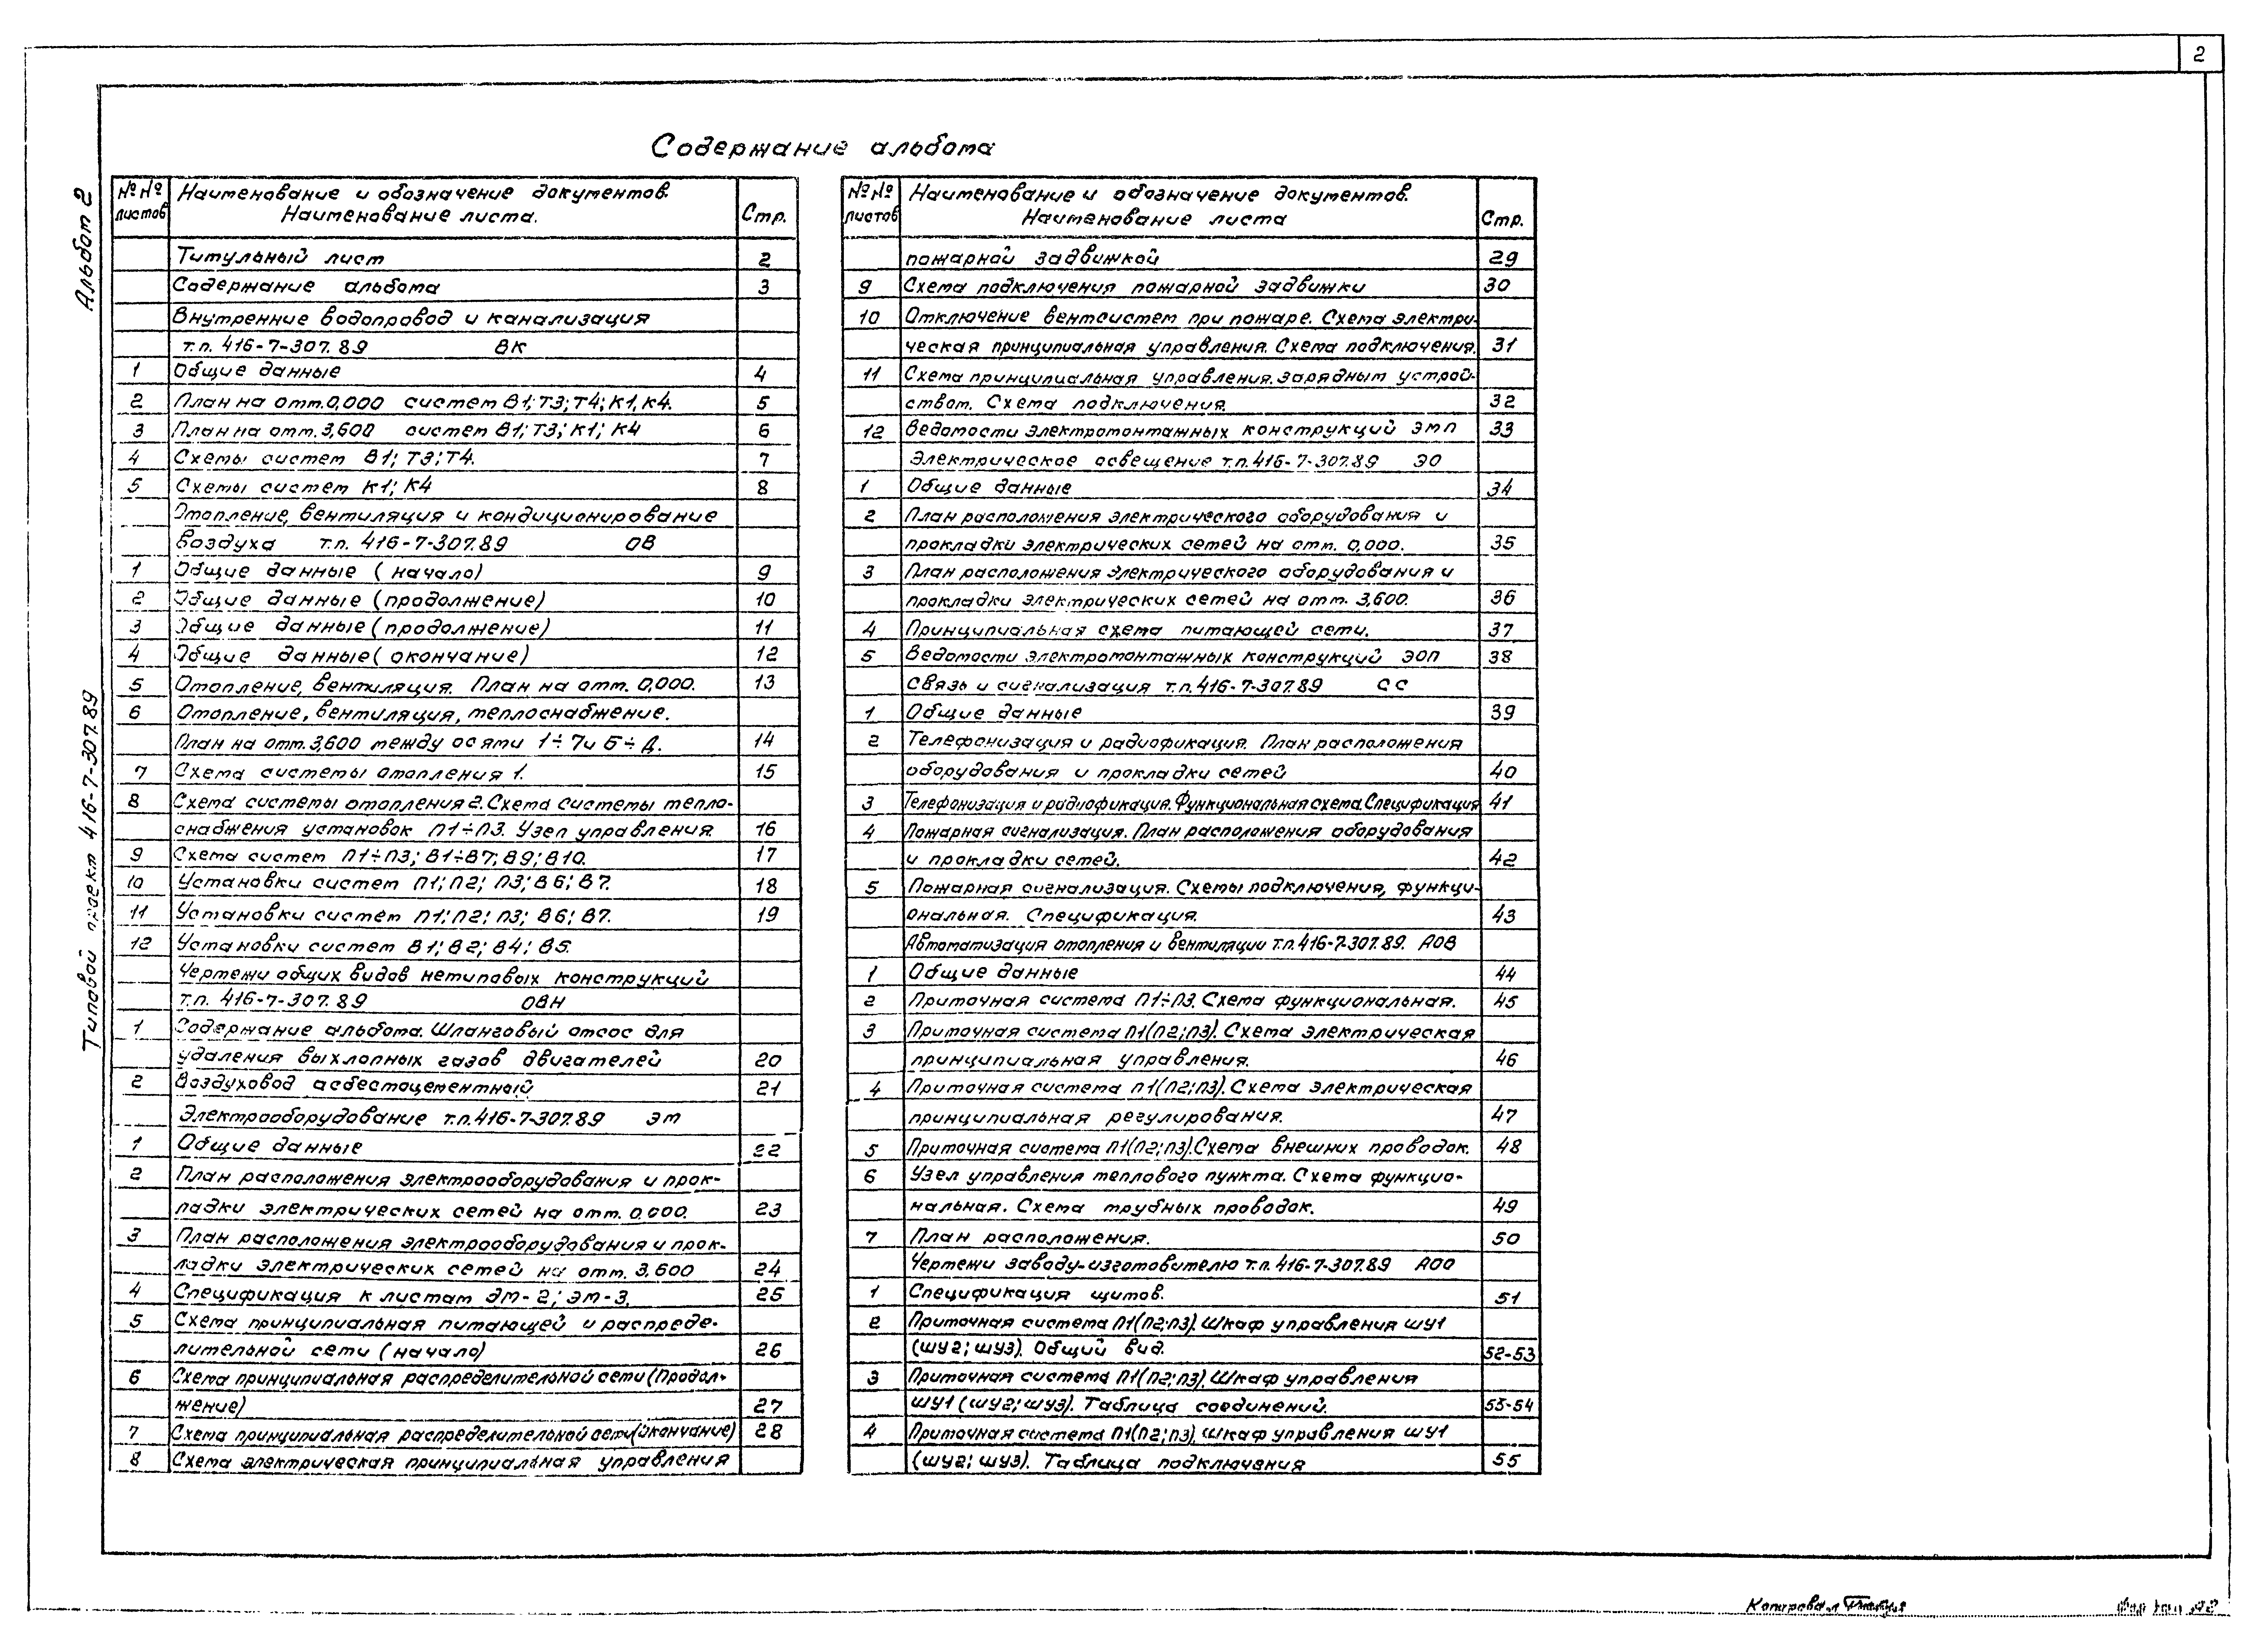 2
Альбом 2
Типовой проект 416-7-307.89
Содержание альбома
№№ листов Наименование и обозначение документов. Наименование листа. Стр.
Титульный лист 2
Содержание альбома 3
Внутренние водопровод и канализация
т.п. 416-7-307.89 ВК
1 Общие данные 4
2 План на отм. 0,000 систем В1; Т3; Т4; К1, К4. 5
3 План на отм. 3,600 систем В1; Т3; К1; К4 6
4 Схемы систем В1; Т3; Т4. 7
5 Схемы систем К1; К4 8
Отопление, вентиляция и кондиционирование
воздуха т.п. 416-7-307.89 ОВ
1 Общие данные (начало) 9
2 Общие данные (продолжение) 10
3 Общие данные (продолжение) 11
4 Общие данные (окончание) 12
5 Отопление, вентиляция. План на отм. 0,000. 13
6 Отопление, вентиляция, теплоснабжение.
План на отм. 3,600 между осями 1÷7 и Б÷Д. 14
7 Схема системы отопления 1. 15
8 Схема системы отопления 2. Схема системы тепло-
снабжения установок П1÷П3. Узел управления 16
9 Схема систем П1÷П3; В1÷В7; В9; В10. 17
10 Установки систем П1; П2; П3; В6; В7. 18
11 Установки систем П1; П2; П3; В6; В7. 19
12 Установки систем В1; В2; В4; В5.
Чертежи общих видов нетиповых конструкций
т.п. 416-7-307.89 ОВН
1 Содержание альбома. Шланговый отсос для
удаления выхлопных газов двигателей 20
2 Воздуховод асбестоцементный 21
Электрооборудование т.п. 416-7-307.89 ЭМ
1 Общие данные 22
2 План расположения электрооборудования и прок-
ладки электрических сетей на отм. 0,000. 23
3 План расположения электрооборудования и прок-
ладки электрических сетей на отм. 3,600 24
4 Спецификация к листам ЭМ-2; ЭМ-3. 25
5 Схема принципиальная питающей и распреде-
лительной сети (начало) 26
6 Схема принципиальная распределительной сети (Продол-
жение) 27
7 Схема принципиальная распределительной сети (окончание) 28
8 Схема электрическая принципиальная управления
№№ листов Наименование и обозначение документов. Наименование листа Стр.
пожарной задвижкой 29
9 Схема подключения пожарной задвижки 30
10 Отключение вентсистем при пожаре. Схема электри-
ческая принципиальная управления. Схема подключения. 31
11 Схема принципиальная управления зарядным устрой-
ством. Схема подключения. 32
12 Ведомости электромонтажных конструкций ЭМП 33
Электрическое освещение т.п. 416-7-307.89 ЭО
1 Общие данные 34
2 План расположения электрического оборудования и
прокладки электрических сетей на отм. 0,000. 35
3 План расположения электрического оборудования и
прокладки электрических сетей на отм. 3,600. 36
4 Принципиальная схема питающей сети. 37
5 Ведомости электромонтажных конструкций ЭОП 38
Связь и сигнализация т.п. 416-7-307.89 СС
1 Общие данные 39
2 Телефонизация и радиофикация. План расположения
оборудования и прокладки сетей 40
3 Телефонизация и радиофикация. Функциональная схема. Спецификация 41
4 Пожарная сигнализация. План расположения оборудования
и прокладки сетей. 42
5 Пожарная сигнализация. Схемы подключения, функци-
ональная. Спецификация. 43
Автоматизация отопления и вентиляции т.п. 416-7-307.89. АОВ
1 Общие данные 44
2 Приточная система П1÷П3. Схема функциональная. 45
3 Приточная система П1(П2; П3). Схема электрическая
принципиальная управления. 46
4 Приточная система П1(П2; П3). Схема электрическая
принципиальная регулирования. 47
5 Приточная система П1(П2; П3). Схема внешних проводок. 48
6 Узел управления теплового пункта. Схема функцио-
нальная. Схема трубных проводок. 49
7 План расположения. 50
Чертежи заводу-изготовителю т.п. 416-7-307.89 АОО
1 Спецификация щитов. 51
2 Приточная система П1(П2; П3). Шкаф управления ШУ1
(ШУ2; ШУ3). Общий вид. 52-53
3 Приточная система П1(П2; П3). Шкаф управления
ШУ1 (ШУ2; ШУ3). Таблица соединений. 53-54
4 Приточная система П1(П2; П3). Шкаф управления ШУ1
(ШУ2; ШУ3). Таблица подключения 55
Копировал
Формат А2